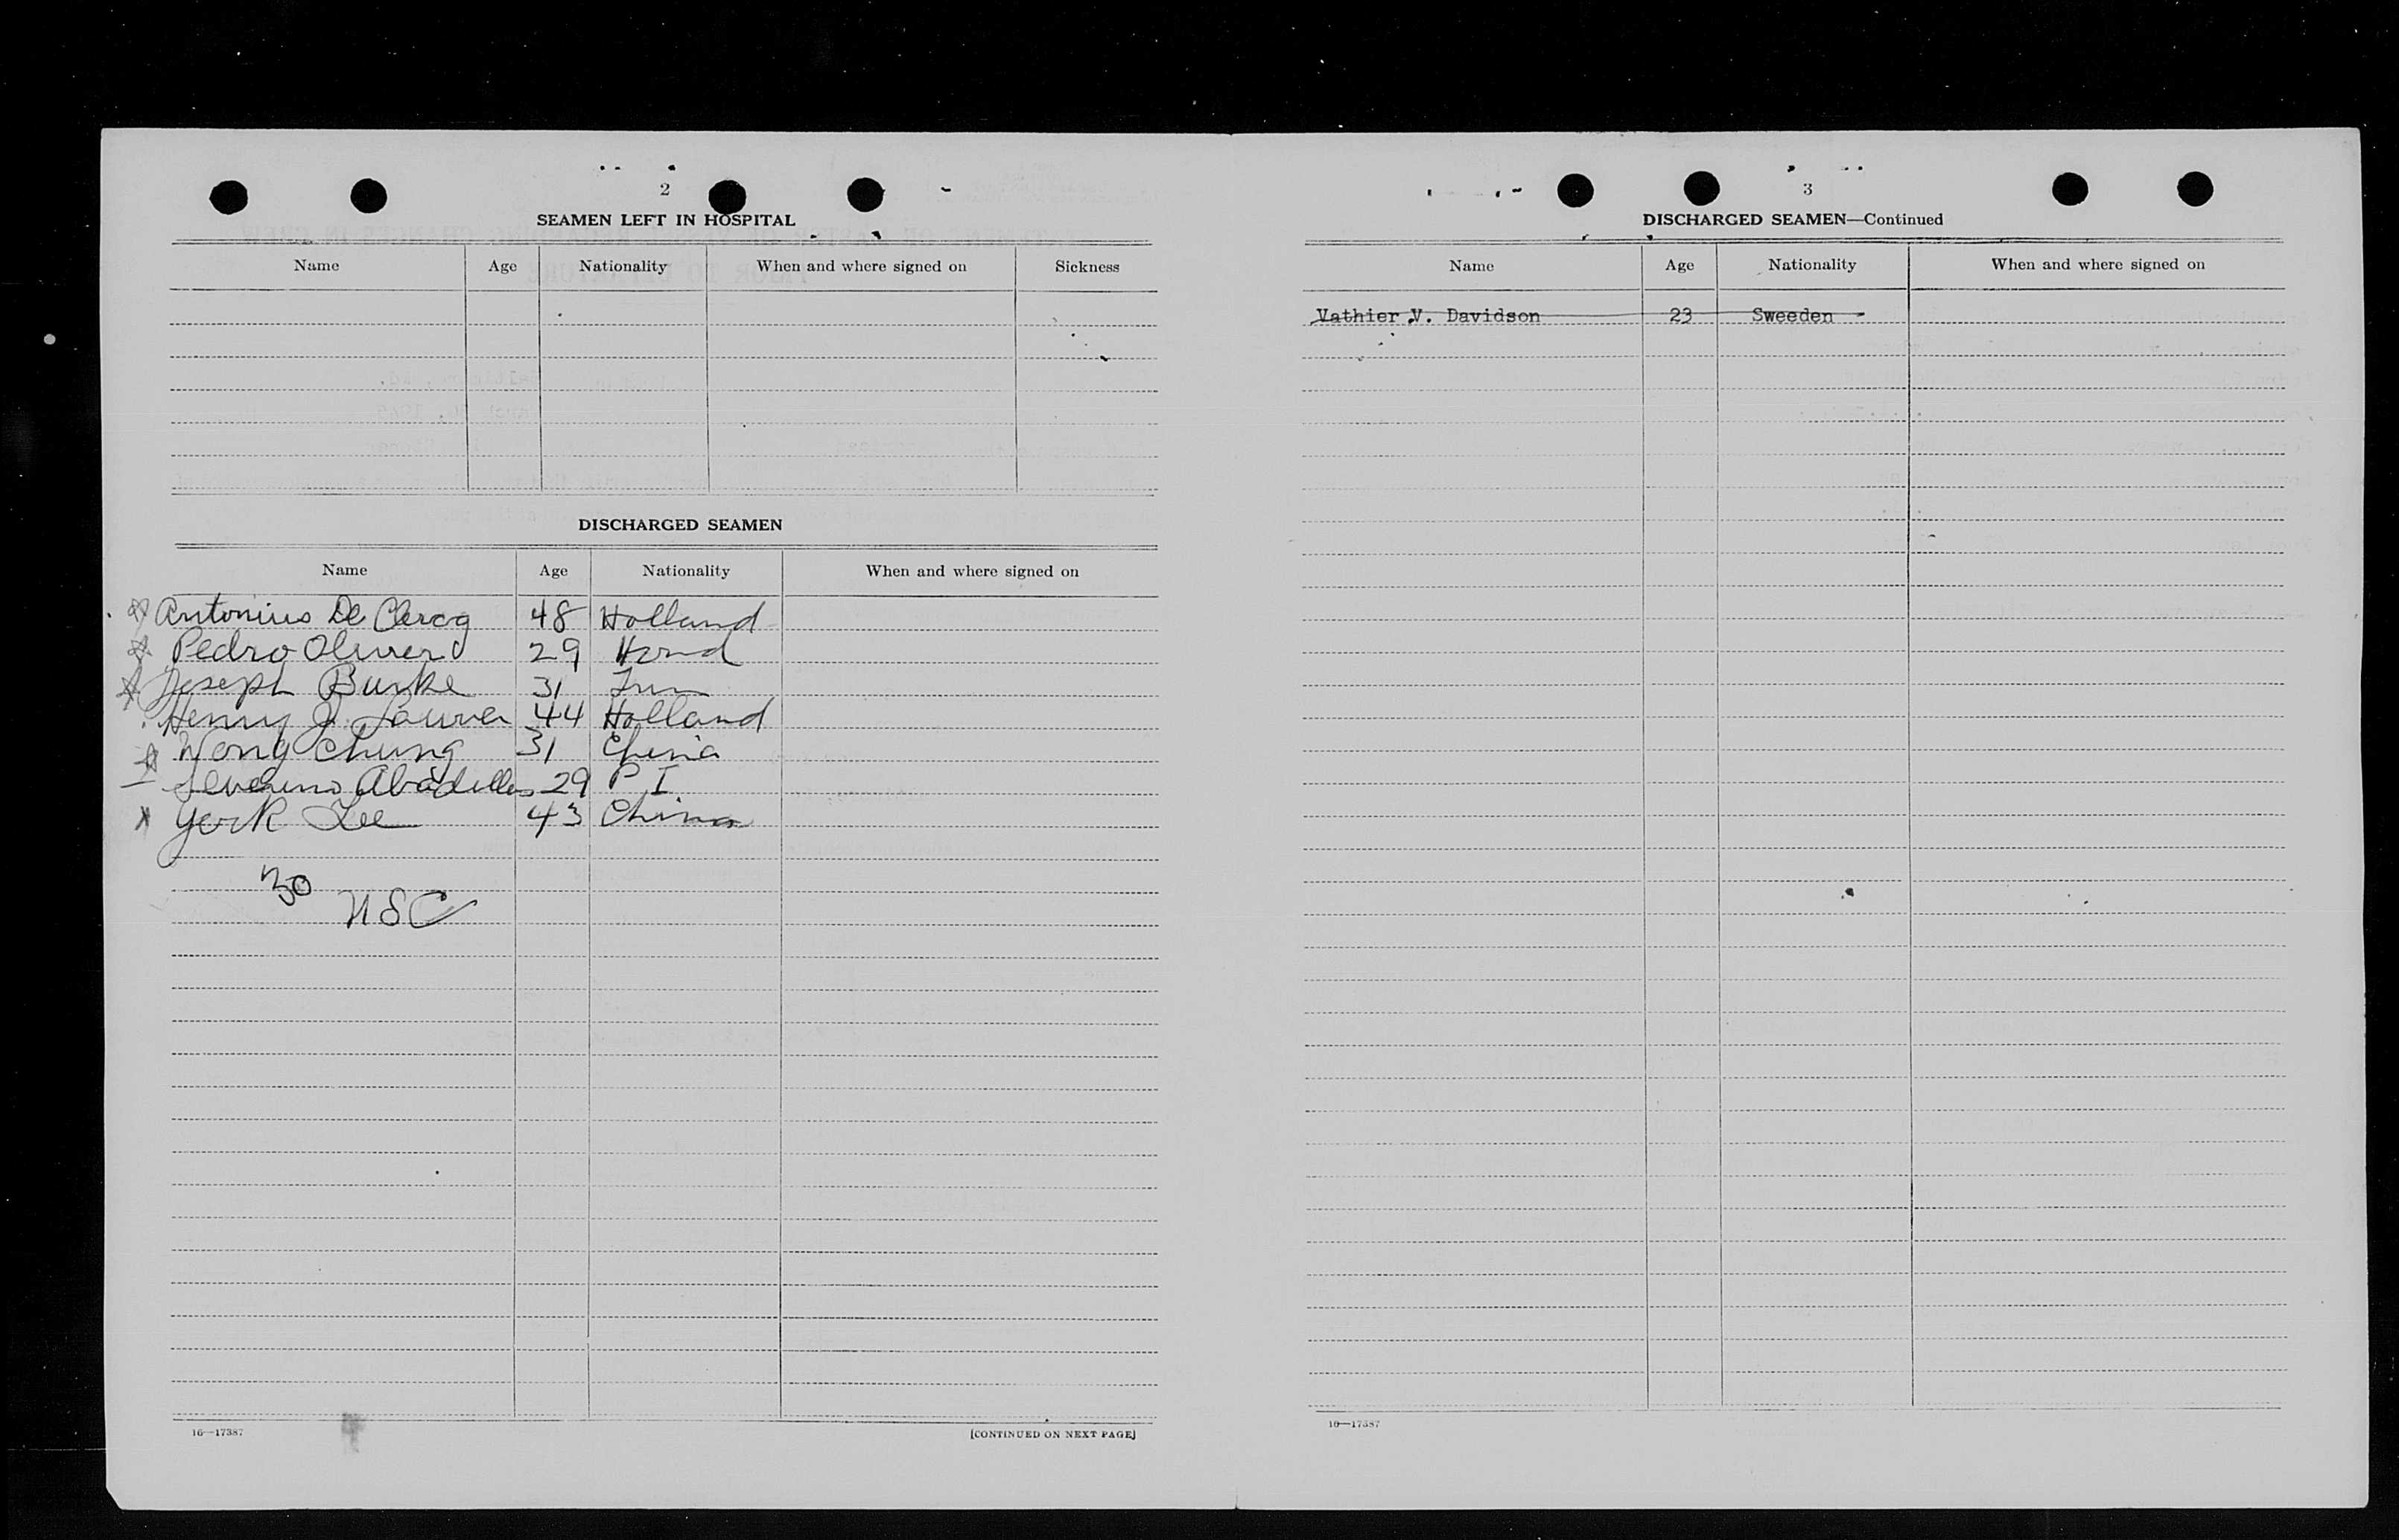 2
SEAMEN LEFT IN HOSPITAL
Name Age Nationality When and where signed on Sickness
DISCHARGED SEAMEN
Name Age Nationality When and where signed on
Antonius De Clercq 48 Holland
Pedro Oliver 29 Hond
Joseph Burke 31
Henry J. 44 Holland
Wong Chung 31 China
29 P I
York Lee 43 China
30
USC
16—17387
[CONTINUED ON NEXT PAGE]
3
DISCHARGED SEAMEN—Continued
Name Age Nationality When and where signed on
Vathier V. Davidson 23 Sweeden
16—17387